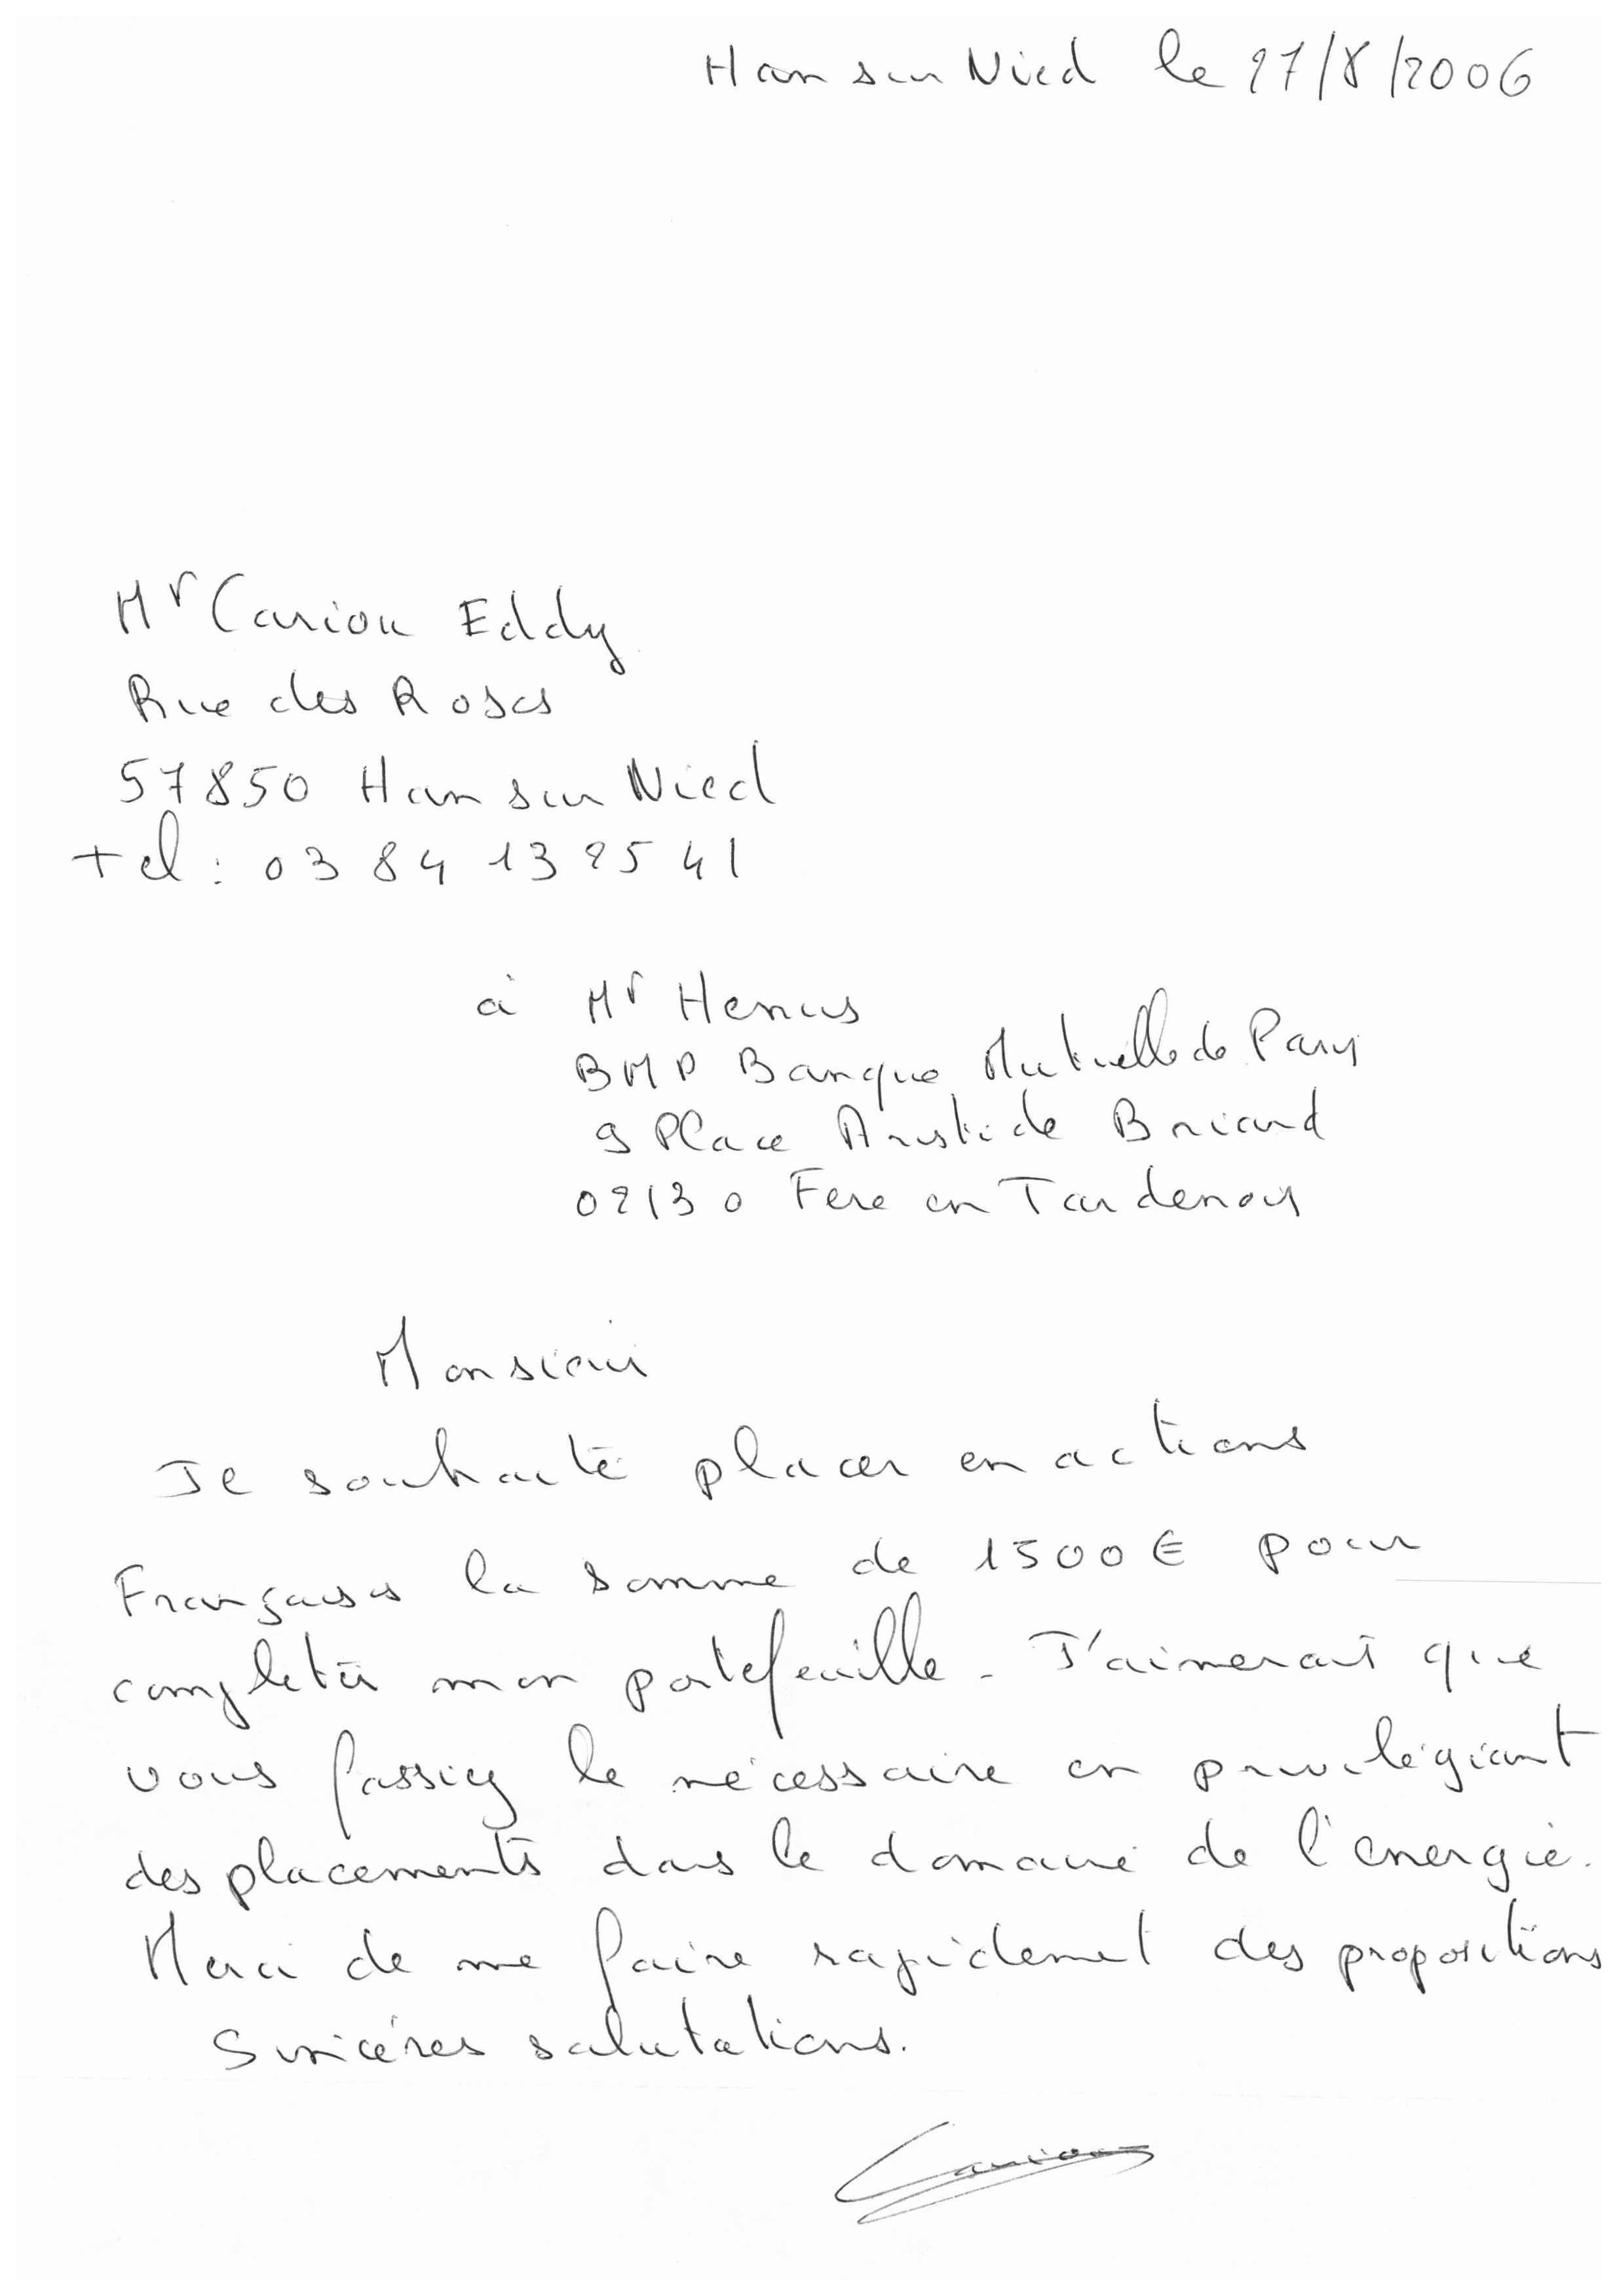 Han sur Nied le 27/8/2006
Mr Cariou Eddy
Rue des Roses
57850 Han sur Nied
tel : 03 84 13 25 41
à Mr Henus
BMP Banque Mutuelle de Paris
9 Place Aristide Briand
02130 Fere en Tardenois
Monsieur
Je souhaite placer en actions
Françaises la somme de 1500 € pour
completer mon portefeuille. J'aimerais que
vous fassiez le nécessaire en privilégiant
des placements dans le domaine de l'energie.
Merci de me faire rapidement des propositions
Sincéres salutations.
Cariou